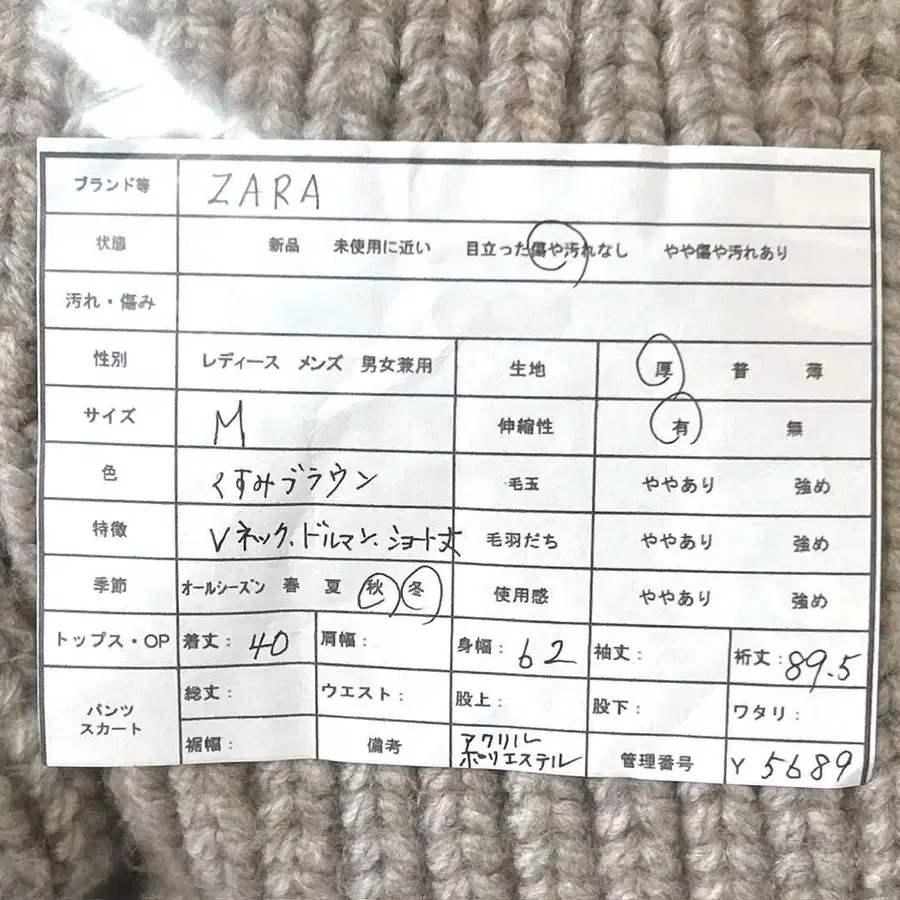 ブランド等 ZARA
状態 新品 未使用に近い 目立った傷や汚れなし やや傷や汚れあり
汚れ・傷み
性別 レディース メンズ 男女兼用 生地 厚 普 薄
サイズ M 伸縮性 有 無
色 くすみブラウン 毛玉 ややあり 強め
特徴 Vネック、ドルマン、ショート丈 毛羽だち ややあり 強め
季節 オールシーズン 春 夏 秋 冬 使用感 ややあり 強め
トップス・OP 着丈: 40 肩幅: 身幅: 62 袖丈: 裄丈: 89.5
パンツ スカート 総丈: ウエスト: 股上: 股下: ワタリ:
裾幅: 備考 アクリル ポリエステル 管理番号 Y 5689